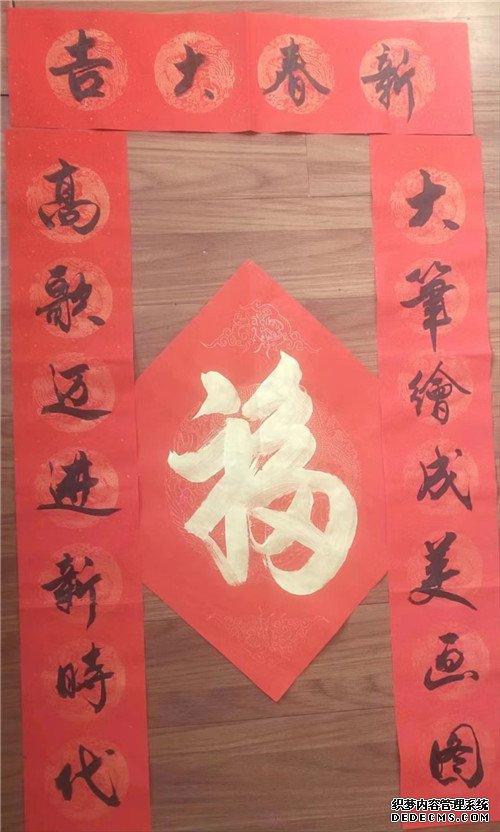 新春大吉
大筆繪成美画图
高歌迈進新時代
福
织梦内容管理系统
DEDECMS.COM